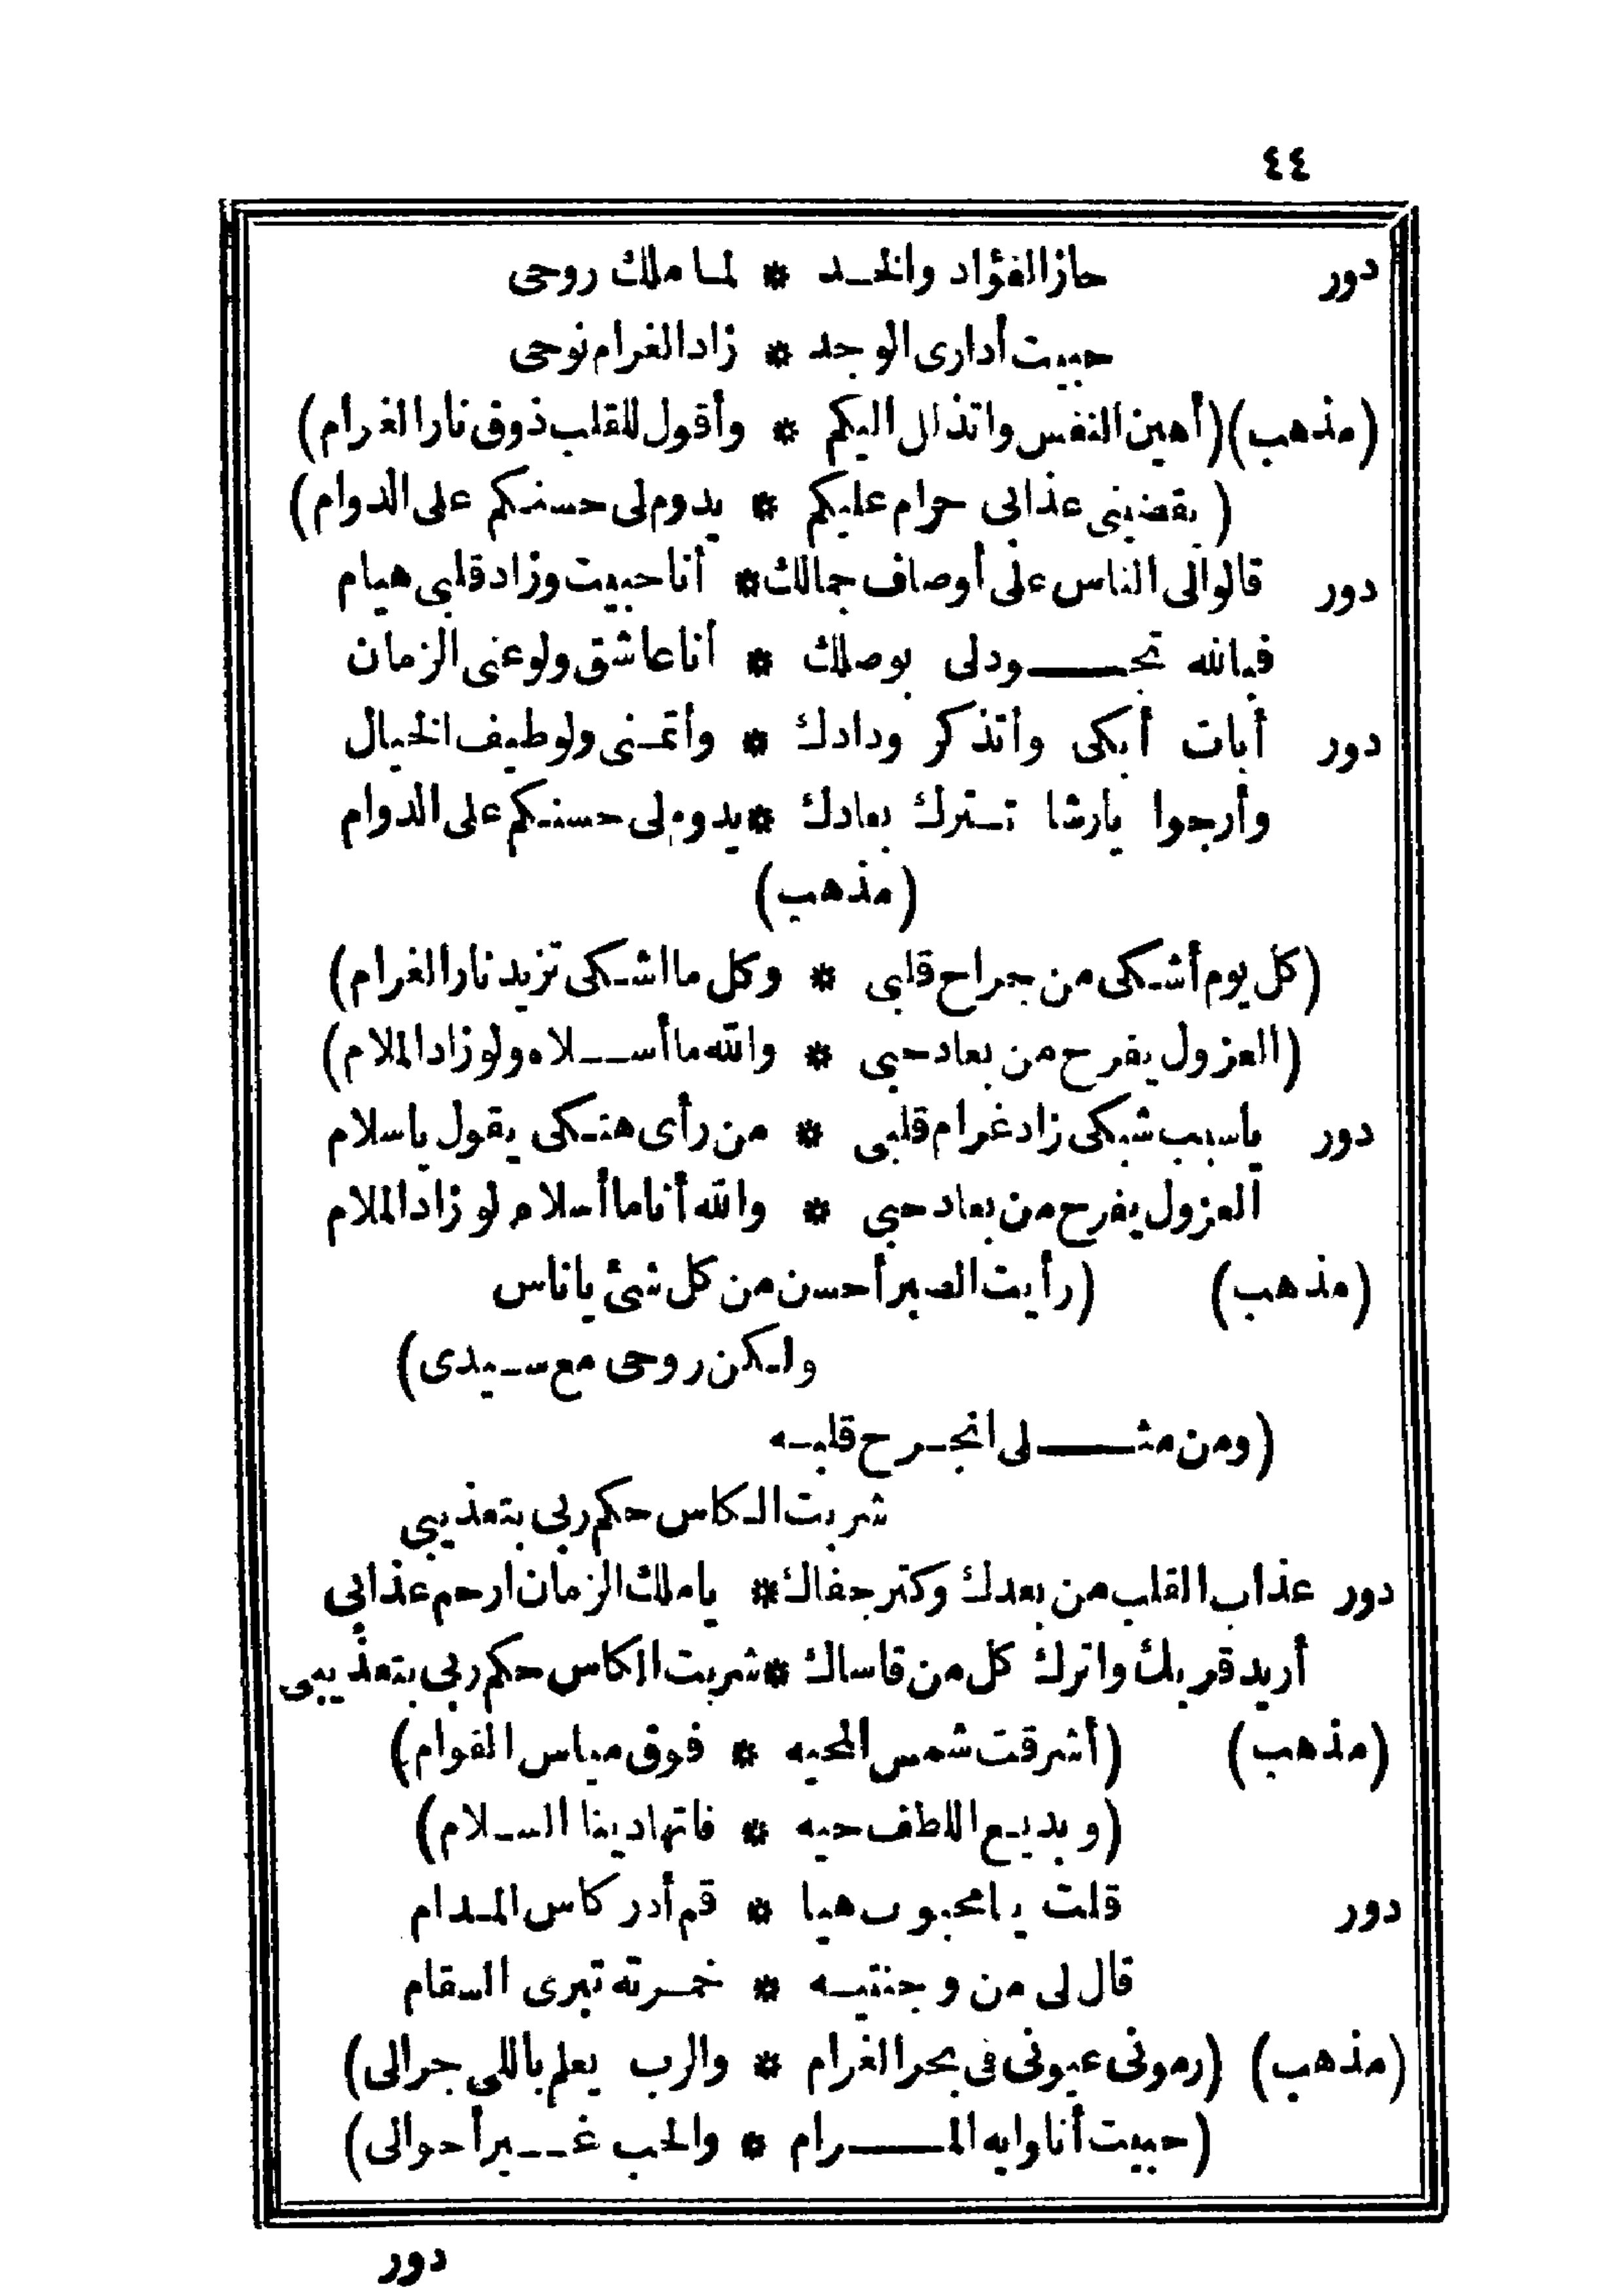 ٤٤
دور حاز الفؤاد والخد * لما ملك روحى
حبيت أدارى الوجد * زاد الغرام نوحى
(مذهب) (أهين النفس واتذلل اليكم * وأقول للقلب ذوق نار الغرام)
(بقضينى عذابى حرام عليكم * يدوم لى حسنكم على الدوام)
دور قالوا لى الناس على أوصاف جمالك * أنا حبيت وزاد قلبى هيام
فبالله تجود لى بوصلك * أنا عاشق ولوعنى الزمان
دور أبات أبكى وأتذكر ودادك * وأتمنى ولو طيف الخيال
وأرجوا يارشا تترك بعادك * يدوم لى حسنكم على الدوام
(مذهب)
(كل يوم أشكى من جراح قلبى * وكل ما اشكى تزيد نار الغرام)
(العزول يفرح من بعاد حبى * والله ما أسلاه ولو زاد الملام)
دور ياسبب شبكى زاد غرام قلبى * من رأى هتكى يقول ياسلام
العزول يفرح من بعاد حبى * والله أنا ما أسلام لو زاد الملام
(مذهب) (رأيت الصبر أحسن من كل شئ ياناس
ولكن روحى مع سيدى)
(ومن مثلى انجرح قلبه
شربت الكاس حكم ربى بتعذيبى
دور عذاب القلب من بعدك وكتر جفاك * ياملك الزمان ارحم عذابى
أريد قربك واترك كل من قاساك * شربت الكاس حكم ربى بتعذيبى
(مذهب) (أشرقت شمس المحيه * فوق مياس القوام)
(وبديع اللطف حيه * فاتهادينا السلام)
دور قلت يامحبوب هيا * قم أدر كاس المدام
قال لى من وجنتيه * خمرته تبرى السقام
(مذهب) (رمونى عيونى فى بحر الغرام * والرب يعلم باللى جرالى)
(حبيت أنا وايه المرام * والحب غير أحوالى)
دور